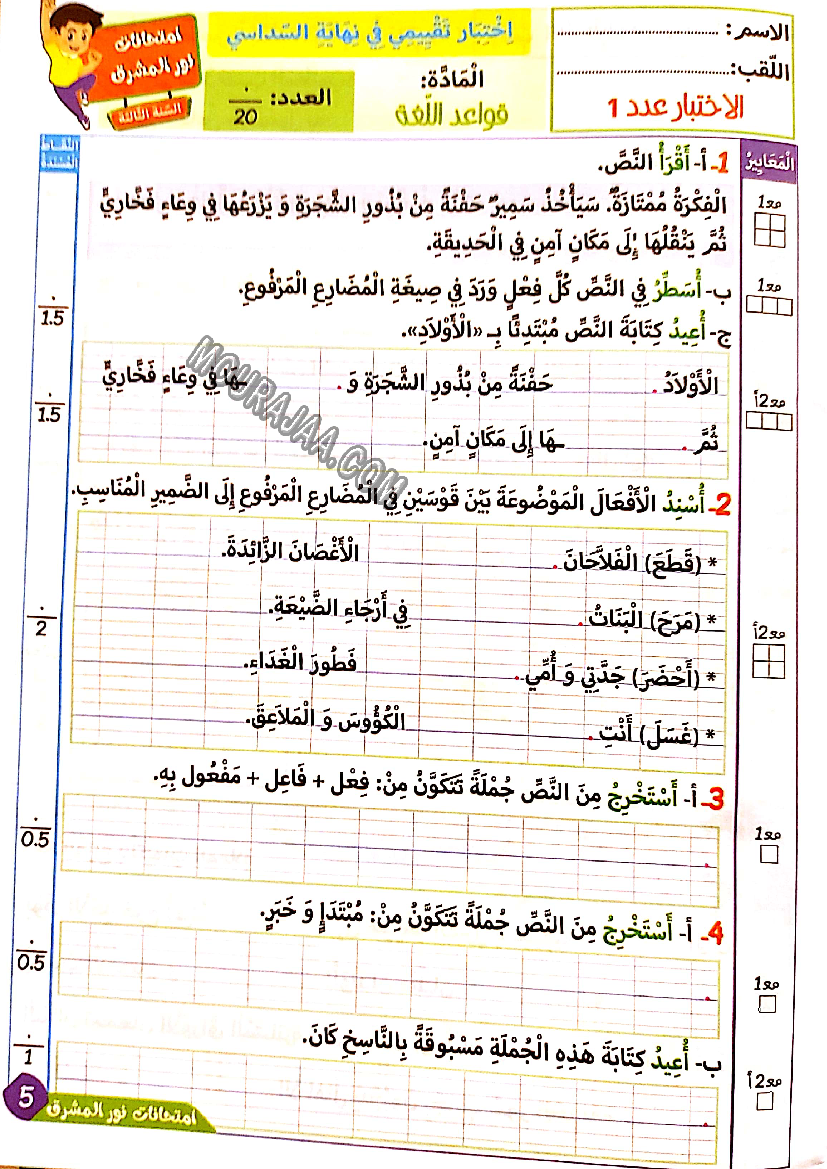 امتحانات
نور المشرق
السنة الثالثة
اِخْتِبَار تَقْيِيمِي فِي نِهَايَةِ السّدَاسي
الْمَادَّة:
قواعد اللّغة
العدد: 20
الاسم:
اللّقب:
الاختبار عدد 1
الْمَعَايِيرُ
النّقاط المُسْندة
1- أ- أَقْرَأُ النَّصَّ.
مع1
الْفِكْرَةُ مُمْتَازَةٌ. سَيَأْخُذُ سَمِيرٌ حَفْنَةً مِنْ بُذُورِ الشَّجَرَةِ وَ يَزْرَعُهَا فِي وِعَاءٍ فَخَّارِيٍّ
ثُمَّ يَنْقُلُهَا إِلَى مَكَانٍ آمِنٍ فِي الْحَدِيقَةِ.
ب- أُسَطِّرُ فِي النَّصِّ كُلَّ فِعْلٍ وَرَدَ فِي صِيغَةِ الْمُضَارِعِ الْمَرْفُوعِ.
مع1
1.5
ج- أُعِيدُ كِتَابَةَ النَّصِّ مُبْتَدِئًا بِـ «الْأَوْلَادِ».
الْأَوْلَادُ . حَفْنَةً مِنْ بُذُورِ الشَّجَرَةِ وَ . ـهَا فِي وِعَاءٍ فَخَّارِيٍّ
مع2أ
1.5
ثُمَّ . ـهَا إِلَى مَكَانٍ آمِنٍ.
MOURAJAA.COM
2- أُسْنِدُ الْأَفْعَالَ الْمَوْضُوعَةَ بَيْنَ قَوْسَيْنِ فِي الْمُضَارِعِ الْمَرْفُوعِ إِلَى الضَّمِيرِ الْمُنَاسِبِ.
* (قَطَعَ) الْفَلاَّحَانَ . الْأَغْصَانَ الزَّائِدَةَ.
* (مَرَحَ) الْبَنَاتُ . فِي أَرْجَاءِ الضَّيْعَةِ.
مع2أ
2
* (أَحْضَرَ) جَدَّتِي وَ أُمِّي . فَطُورَ الْغَدَاءِ.
* (غَسَلَ) أَنْتِ . الْكُؤُوسَ وَ الْمَلاَعِقَ.
3- أ- أَسْتَخْرِجُ مِنَ النَّصِّ جُمْلَةً تَتَكَوَّنُ مِنْ: فِعْل + فَاعِل + مَفْعُول بِهِ.
مع1
0.5
4- أ- أَسْتَخْرِجُ مِنَ النَّصِّ جُمْلَةً تَتَكَوَّنُ مِنْ: مُبْتَدَإٍ وَ خَبَرٍ.
مع1
0.5
ب- أُعِيدُ كِتَابَةَ هَذِهِ الْجُمْلَةِ مَسْبُوقَةً بِالنَّاسِخِ كَانَ.
مع2أ
1
5 امتحانات نور المشرق